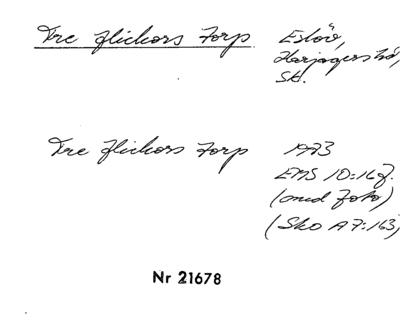 Tre flickors Torp. Eslöv,
Harjagers hd,
Sk.
Tre flickors Torp 1973
EMS 10:167.
(med foto)
(Sko A7:163)
Nr 21678